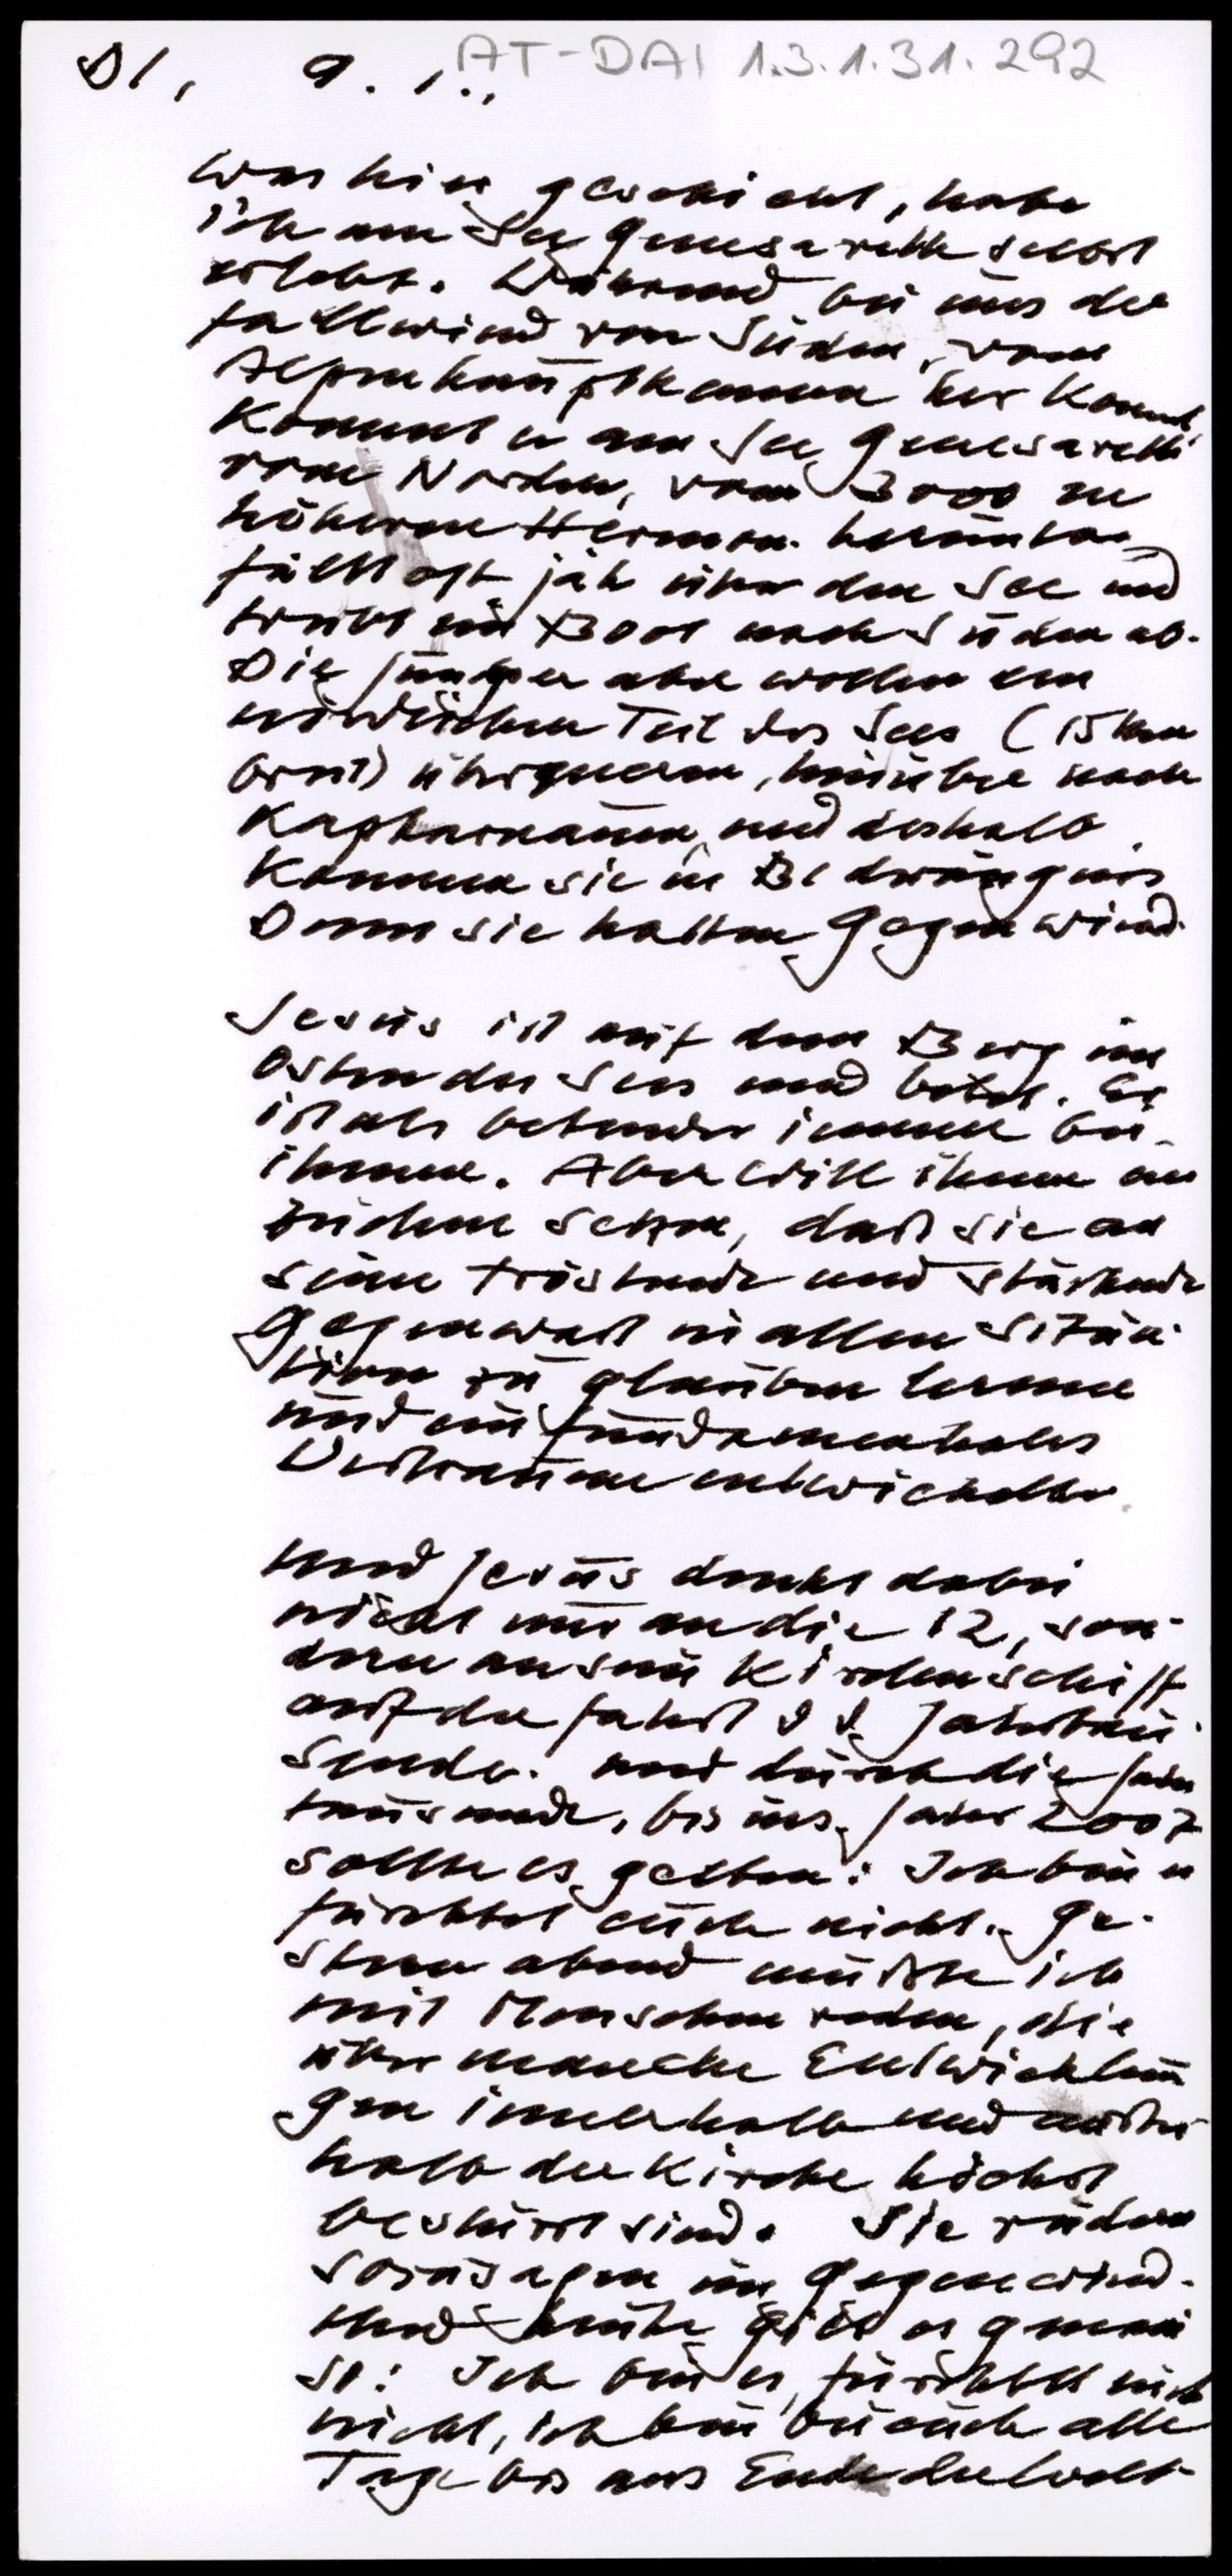 DI, 9.1., AT-DAI 1.3.1.31.292
Was hier geschieht, habe
ich am See Genesareth selbst
erlebt. Während bei uns der
Fallwind von Süden, vom
Alpenhauptkamm her kommt
kommt er am See Genesareth
vom Norden, vom 3000 m
höheren Hermon. herunter
fällt oft jäh über den See und
treibt ein Boot nach Süden ab.
Die Jünger aber wollen den
nördlichen Teil des Sees (15 km
breit) überqueren, hinüber nach
Kapharnaum, und deshalb
kommen sie in Bedrängnis
Denn sie hatten Gegenwind.
Jesus ist auf dem Berg im
Osten des Sees und betet. Er
ist als betender immer bei
ihnen. Aber will ihnen ein
Zeichen setzen, daß sie an
seine tröstende und stärkende
Gegenwart in allen Situa
tionen zu glauben lernen
und ein fundamentales
Vertrauen entwickeln.
Und Jesus denkt dabei
nicht nur an die 12, son-
dern an sein Kirchenschiff
auf der Fahrt d d. Jahrtau
sende. und durch die Jahr
tausende, bis ins Jahr 2007
sollte es gelten: Ich bin es
fürchtet euch nicht. Ge-
stern abend mußte ich
mit Menschen reden, die
über manche Entwicklun
gen innerhalb und außer
halb der Kirche höchst
bestürzt sind. Sie rudern
sozusagen im Gegenwind.
Und heute gilt es genau
so: Ich bin es, fürchtet euch
nicht, ich bin bei euch alle
Tage bis ans Ende der Welt.